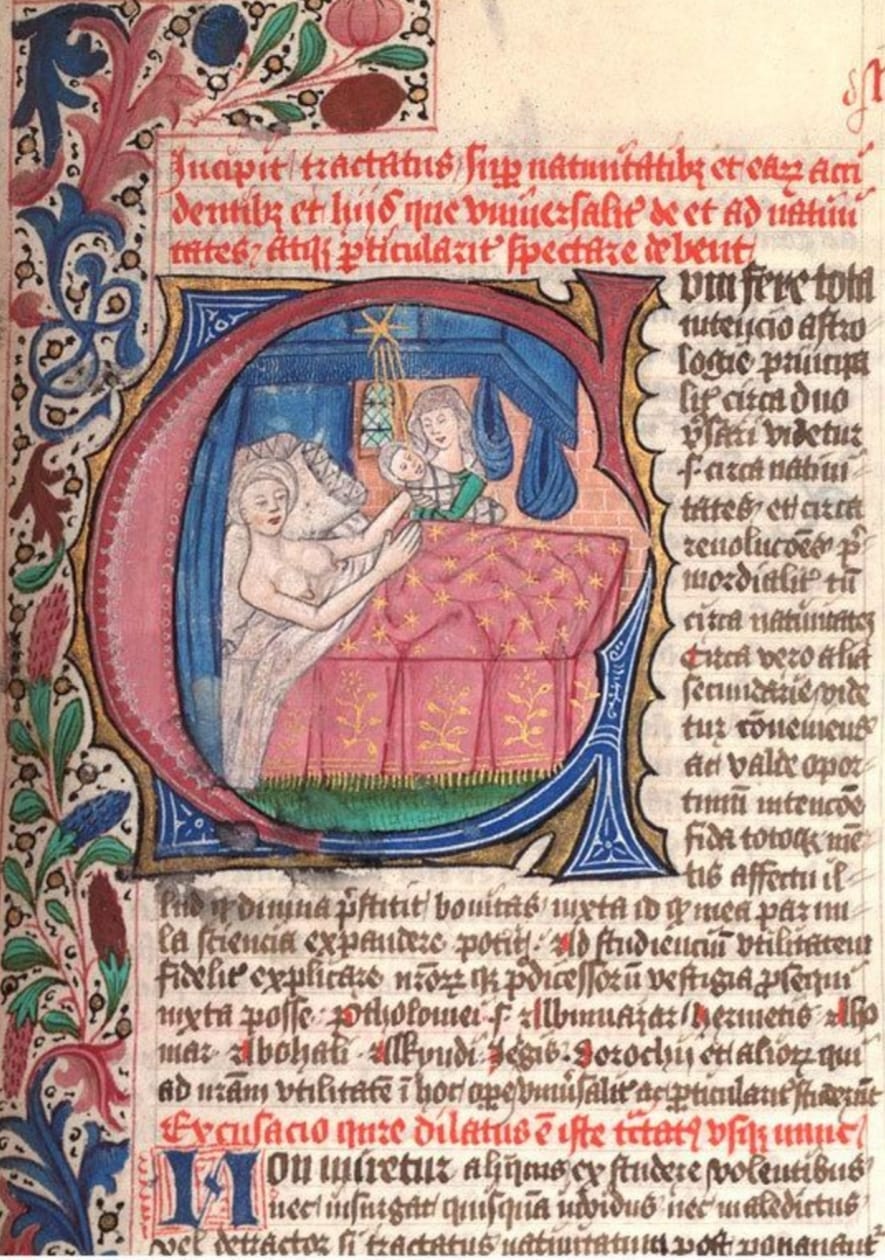 Incipit tractatus sup natiuitatibz et earz acci
dentibz et hijs que vniuersalit de et ad natiui
tates atqz pticularit spectare debent
vm fere tota
intencio astro
logie principa
lit circa duo
vsari videtur
s circa natiui
tates et circa
reuolucoes p
mordialit tn
circa natiuitates
Circa vero alia
secundarie vide
tur conueniens
ac valde opor
tunu intencoe
fida totoqz me
tis affectu il
lud qd diuina pstitit bonitas iuxta id qd mea paruu
la sciencia expandere potit Ad studienciu vtilitatem
fidelit explicare nrorz qz pdicessoru vestigia psequi
iuxta posse ptholomei s Albumazar hermetis Aho
mar Abohali Alkyndi Zegis Dorochij et aliorz qui
ad nram vtilitate i hoc ope vniusalit ac pticularit studerut
Excusacio qure dilatus e iste tctatus vsqz nunc
Non miretur aliquis ex studere volentibus
nec insurgat quisqua inuidus nec maledictus
vel detractor si tractatus natiuitatum post